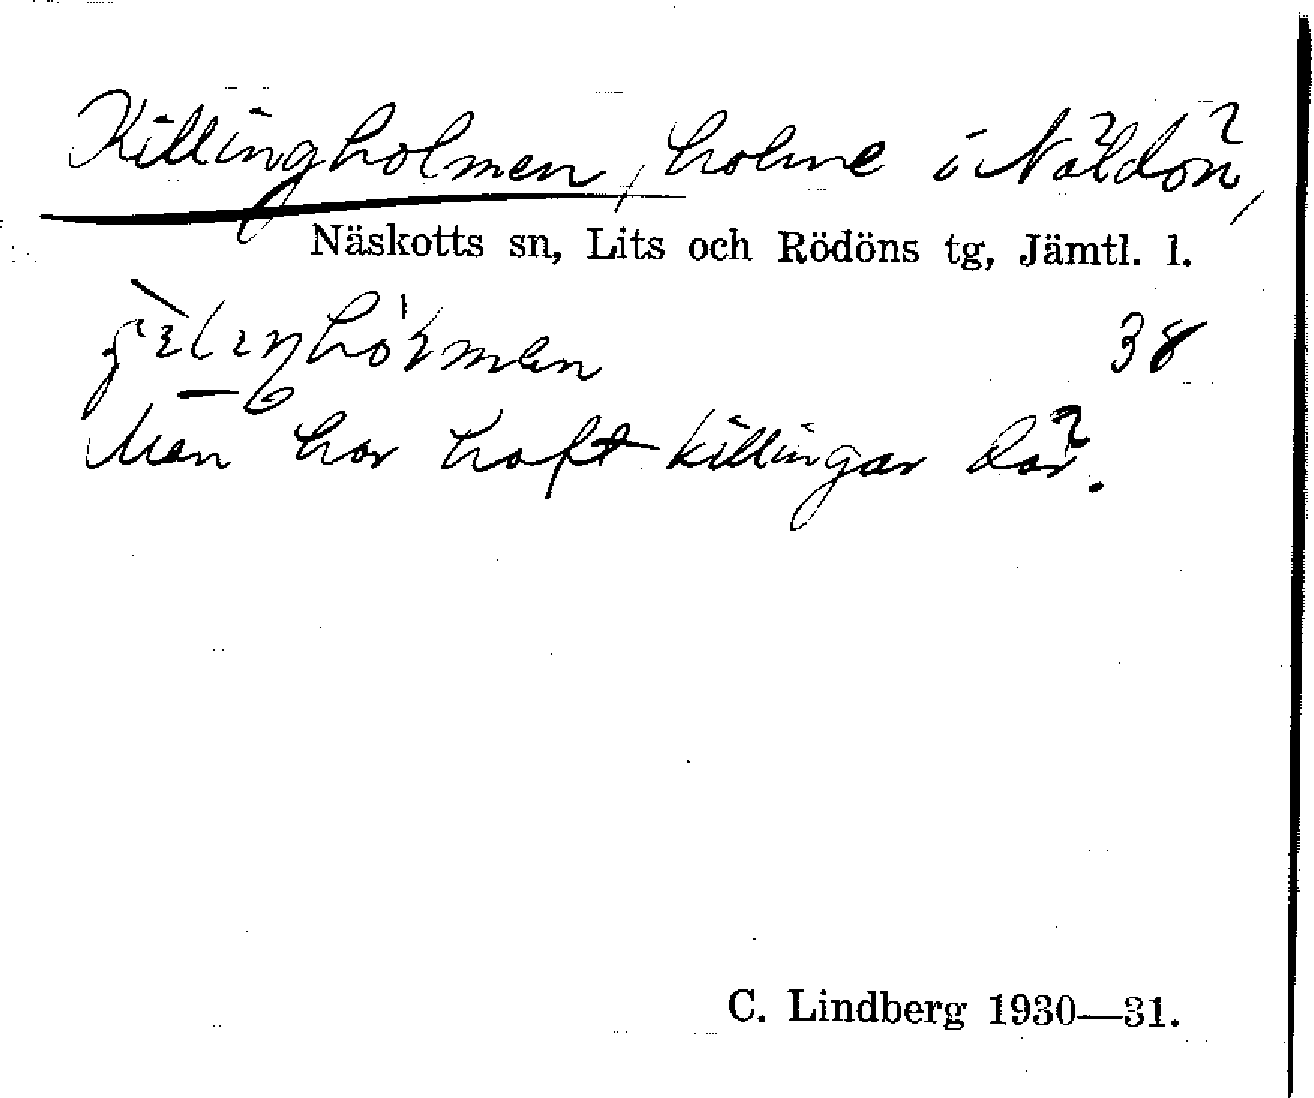 Killingholmen, holme i Näldön,
Näskotts sn, Lits och Rödöns tg, Jämtl. l.
38
Man har haft killingar där.
C. Lindberg 1930—31.